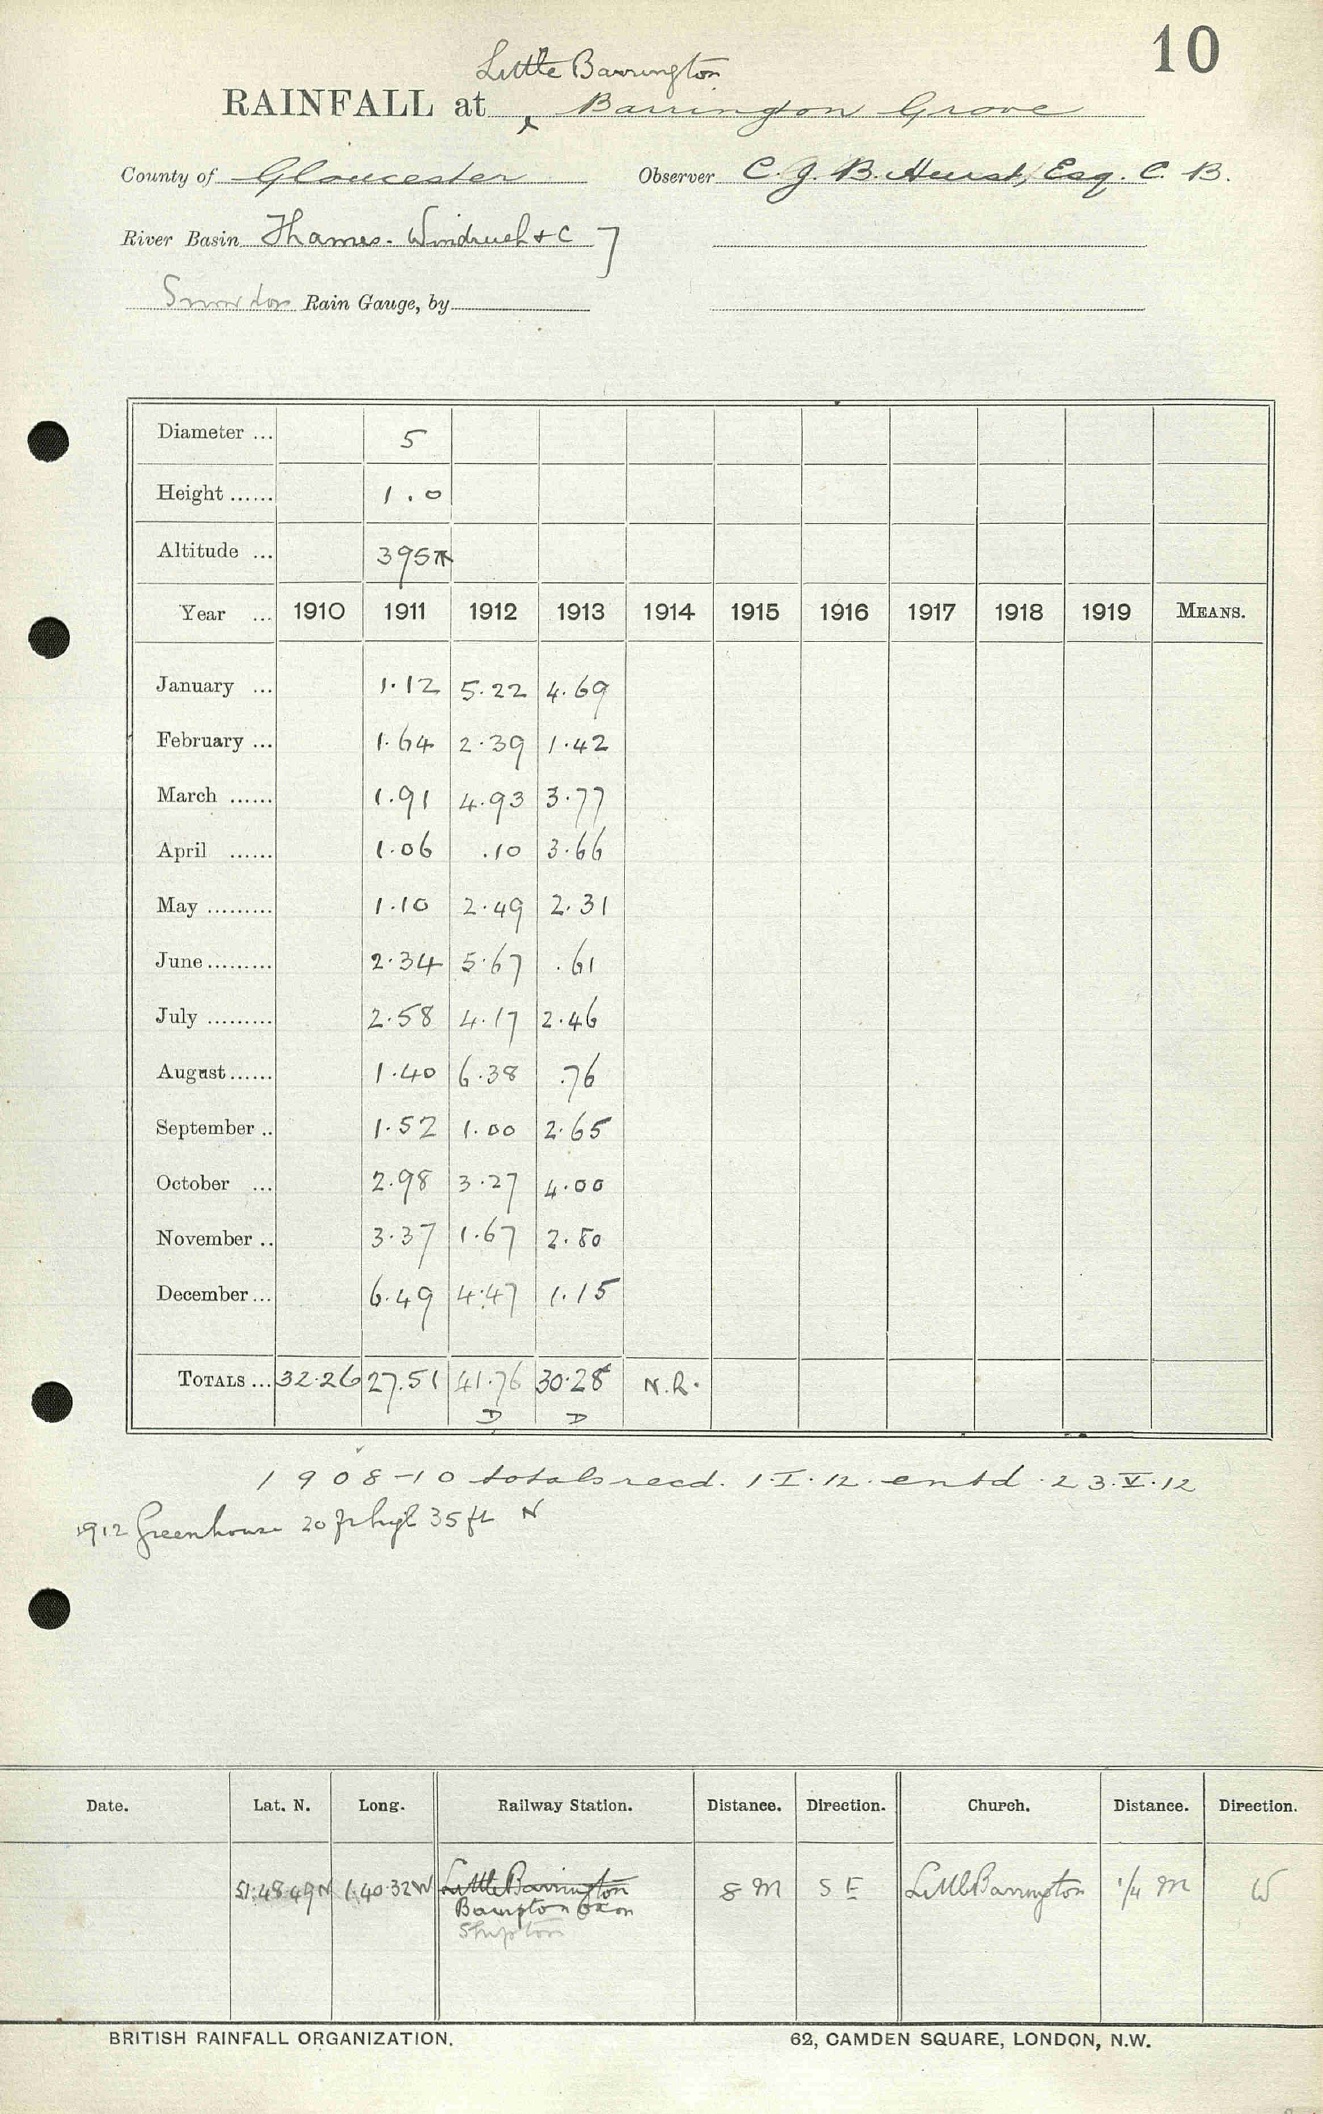 10
Little Barrington
RAINFALL at Barrington Grove
County of Gloucester Observer C. J. B. Hurst, Esq. C. B.
River Basin Thames. Windrush & C ]
Snowdon Rain Gauge, by
Diameter ... 5
Height ...... 1.0
Altitude ... 395
Year ... 1910 1911 1912 1913 1914 1915 1916 1917 1918 1919 MEANS.
January ... 1.12 5.22 4.69
February ... 1.64 2.39 1.42
March ...... 1.91 4.93 3.77
April ...... 1.06 .10 3.66
May ......... 1.10 2.49 2.31
June ......... 2.34 5.67 .61
July ......... 2.58 4.17 2.46
August ...... 1.40 6.38 .76
September .. 1.52 1.00 2.65
October ... 2.98 3.27 4.00
November .. 3.37 1.67 2.80
December ... 6.49 4.47 1.15
TOTALS ... 32.26 27.51 41.76 30.28 N.R.
D D
1908-10 totals recd. 1.I.12. entd. 23.V.12
1912 Greenhouse 20 ft high 35 ft N
Date. Lat. N. Long. Railway Station. Distance. Direction. Church. Distance. Direction.
51.48.49N 1.40.32W Little Barrington 8 M S E Little Barrington 1/4 M W
Bampton Oxon
Shipton
BRITISH RAINFALL ORGANIZATION. 62, CAMDEN SQUARE, LONDON, N.W.